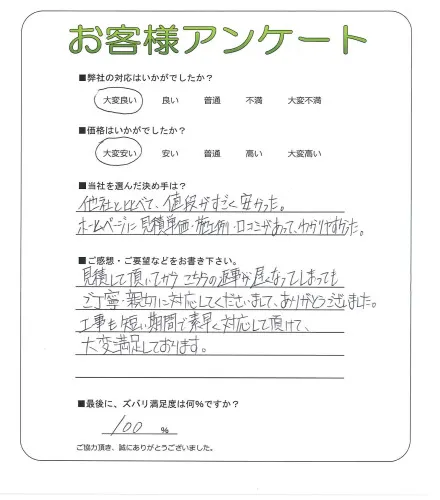 お客様アンケート
■弊社の対応はいかがでしたか？
大変良い 良い 普通 不満 大変不満
■価格はいかがでしたか？
大変安い 安い 普通 高い 大変高い
■当社を選んだ決め手は？
他社と比べて、値段がすごく安かった。
ホームページに見積単価・施工例・口コミがあって、わかりやすかった。
■ご感想・ご要望などをお書き下さい。
見積して頂いてから こちらの返事が遅くなってしまっても
ご丁寧・親切に対応してくださいまして、ありがとうございました。
工事も短い期間で素早く対応して頂けて、
大変満足しております。
■最後に、ズバリ満足度は何％ですか？
100 ％
ご協力頂き、誠にありがとうございました。